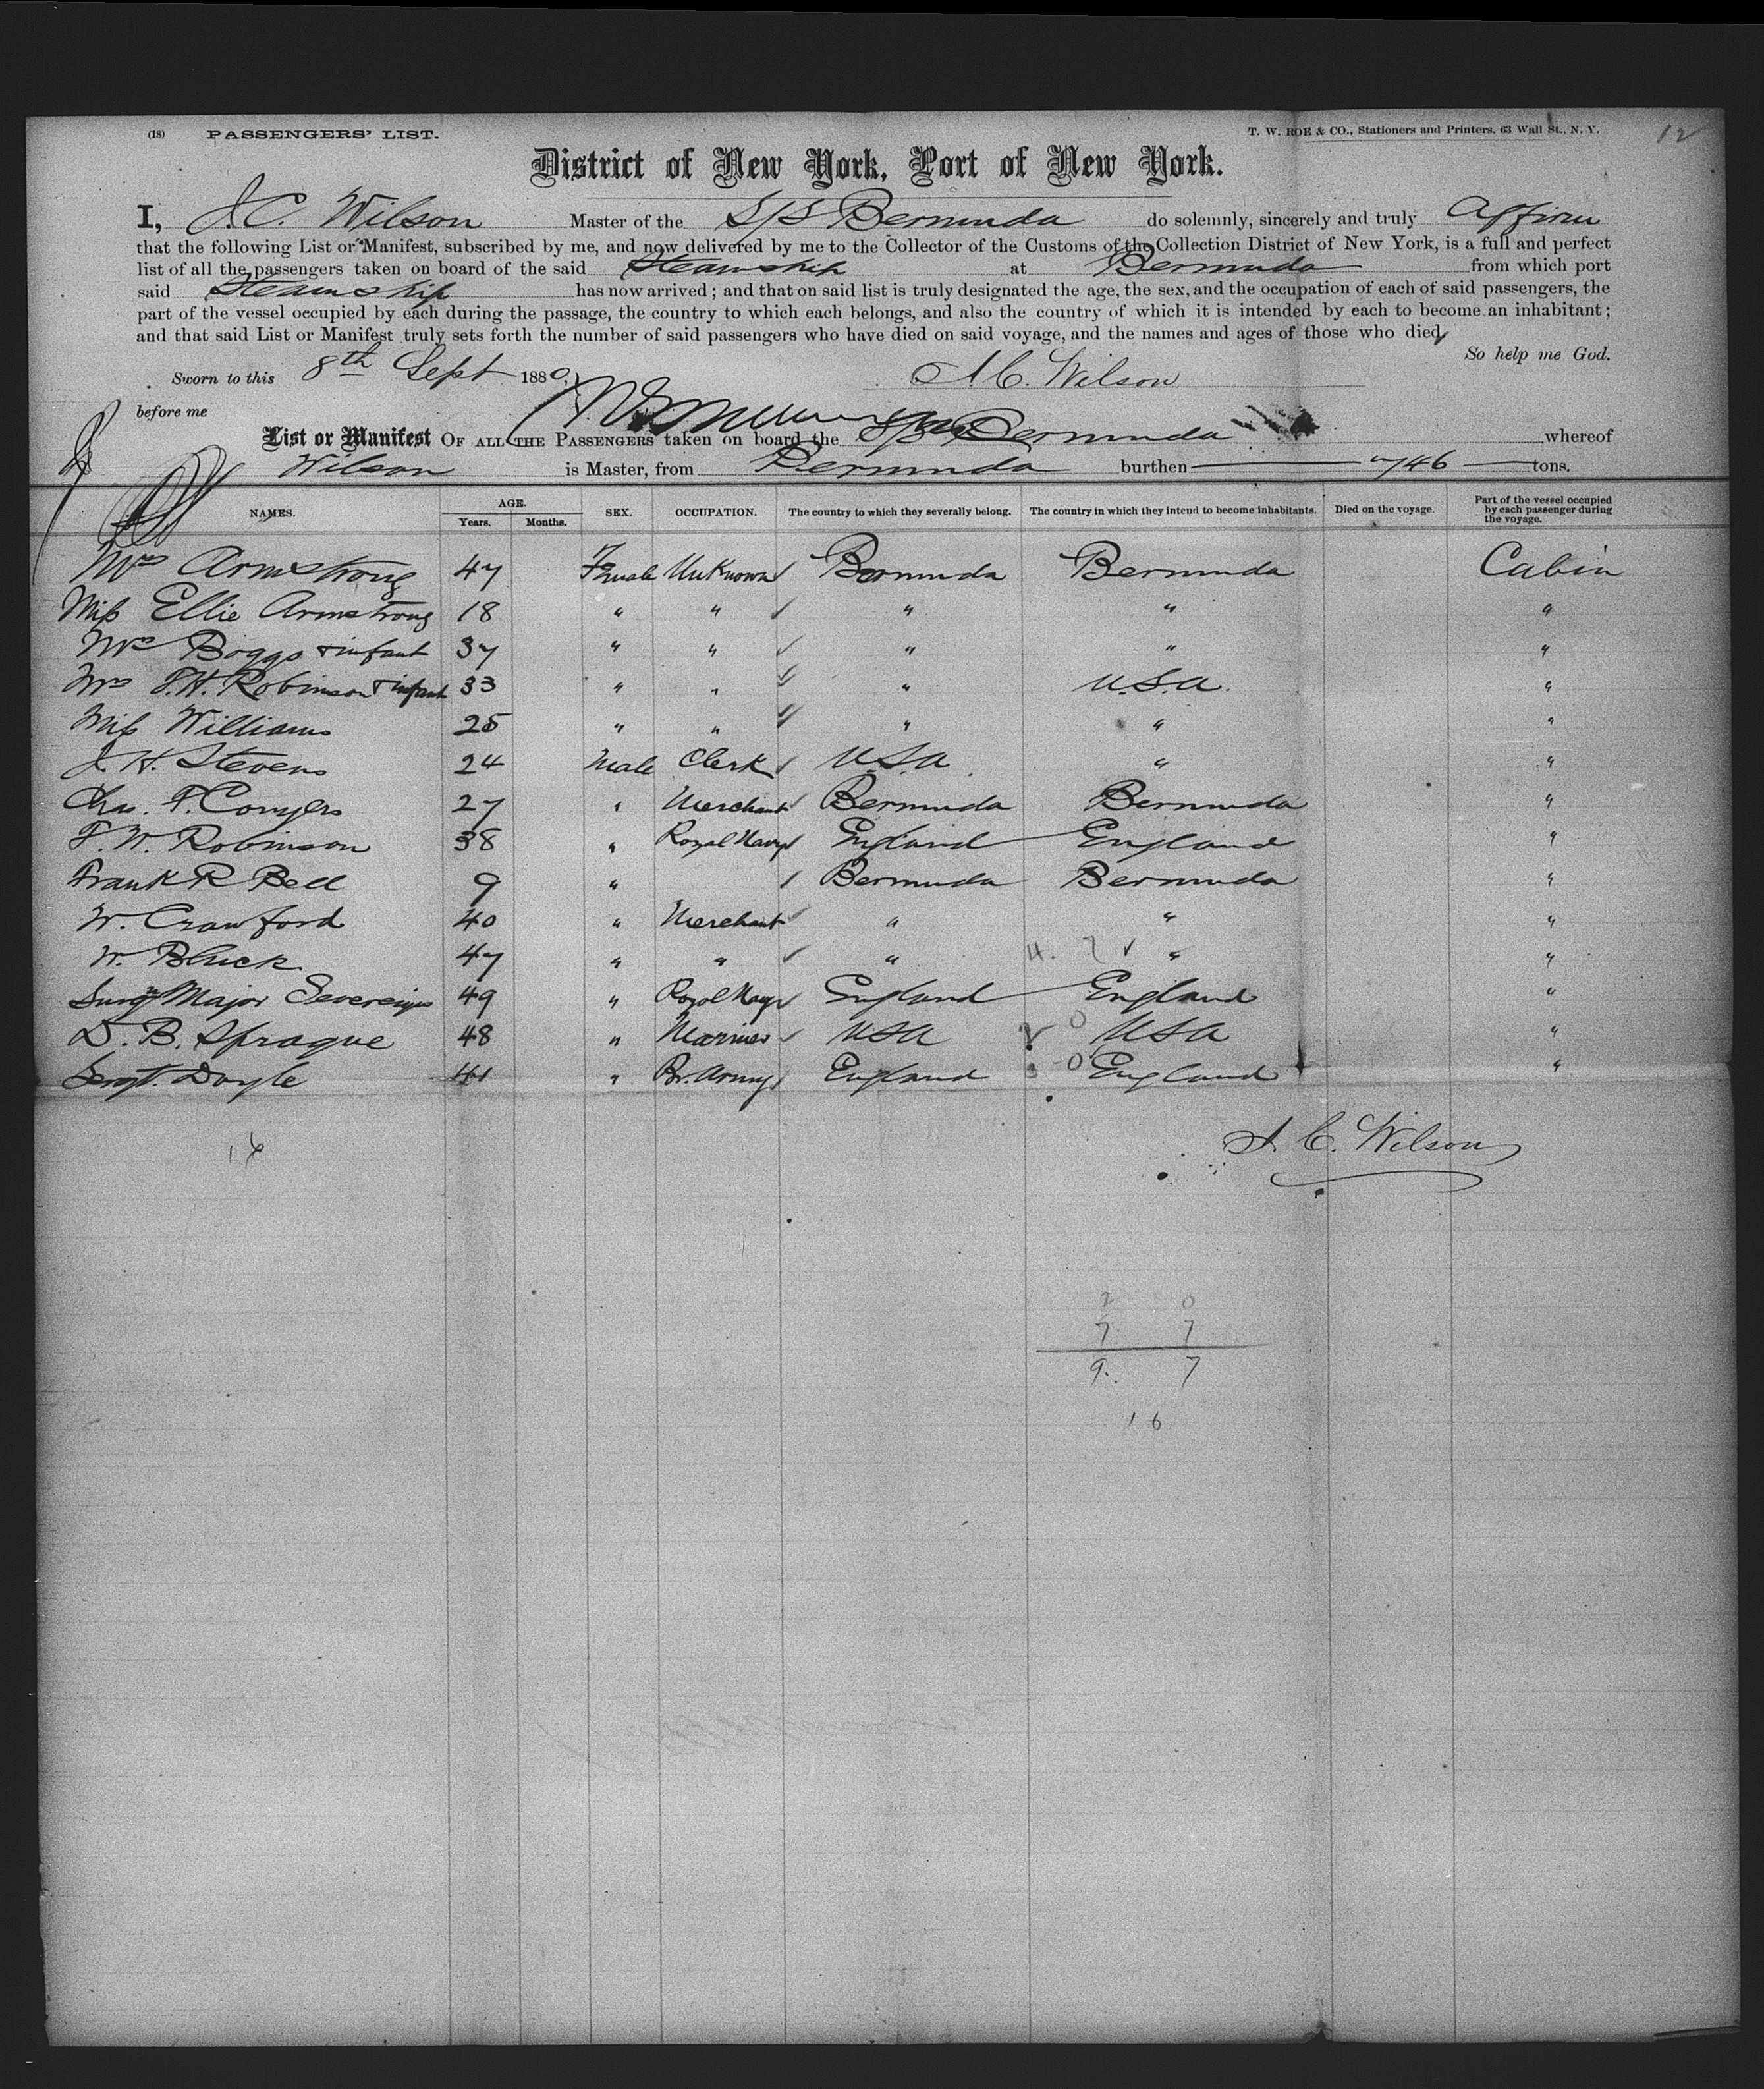 (18) PASSENGERS' LIST. T. W. ROE & CO., Stationers and Printers, 63 Wall St., N. Y. 12
District of New York, Port of New York.
I, J. C. Wilson Master of the S/S Bermuda do solemnly, sincerely and truly affirm
that the following List or Manifest, subscribed by me, and now delivered by me to the Collector of the Customs of the Collection District of New York, is a full and perfect
list of all the passengers taken on board of the said Steamship at Bermuda from which port
said Steamship has now arrived; and that on said list is truly designated the age, the sex, and the occupation of each of said passengers, the
part of the vessel occupied by each during the passage, the country to which each belongs, and also the country of which it is intended by each to become an inhabitant;
and that said List or Manifest truly sets forth the number of said passengers who have died on said voyage, and the names and ages of those who died,
So help me God.
Sworn to this 8th Sept 1880, J. C. Wilson
before me
List or Manifest OF ALL THE PASSENGERS taken on board the S/S Bermuda whereof
Wilson is Master, from Bermuda burthen 746 tons.
NAMES. AGE. Years. Months. SEX. OCCUPATION. The country to which they severally belong. The country in which they intend to become inhabitants. Died on the voyage. Part of the vessel occupied by each passenger during the voyage.
Mrs Armstrong 47 Female Unknown Bermuda Bermuda Cabin
Miss Ellie Armstrong 18 " " " " "
Mrs Boggs & infant 37 " " " " "
Mrs F. H. Robinson & infant 33 " " " U.S.A. "
Miss Williams 25 " " " " "
J. H. Stevens 24 Male Clerk U.S.A. " "
Chas. F. Conyers 27 " Merchant Bermuda Bermuda "
F. W. Robinson 38 " Royal Navy England England "
Frank R Bell 9 " Bermuda Bermuda "
W. Crawford 40 " Merchant " " "
W. Bluck 47 " " " 4. 7 " "
Surgn Major 49 " Royal Navy England England "
D. B. Sprague 48 " Mariner USA 2 0 USA "
Sergt. Doyle 41 " Br. Army England 3 0 England "
J. C. Wilson
16
2 0
7 7
9. 7
16